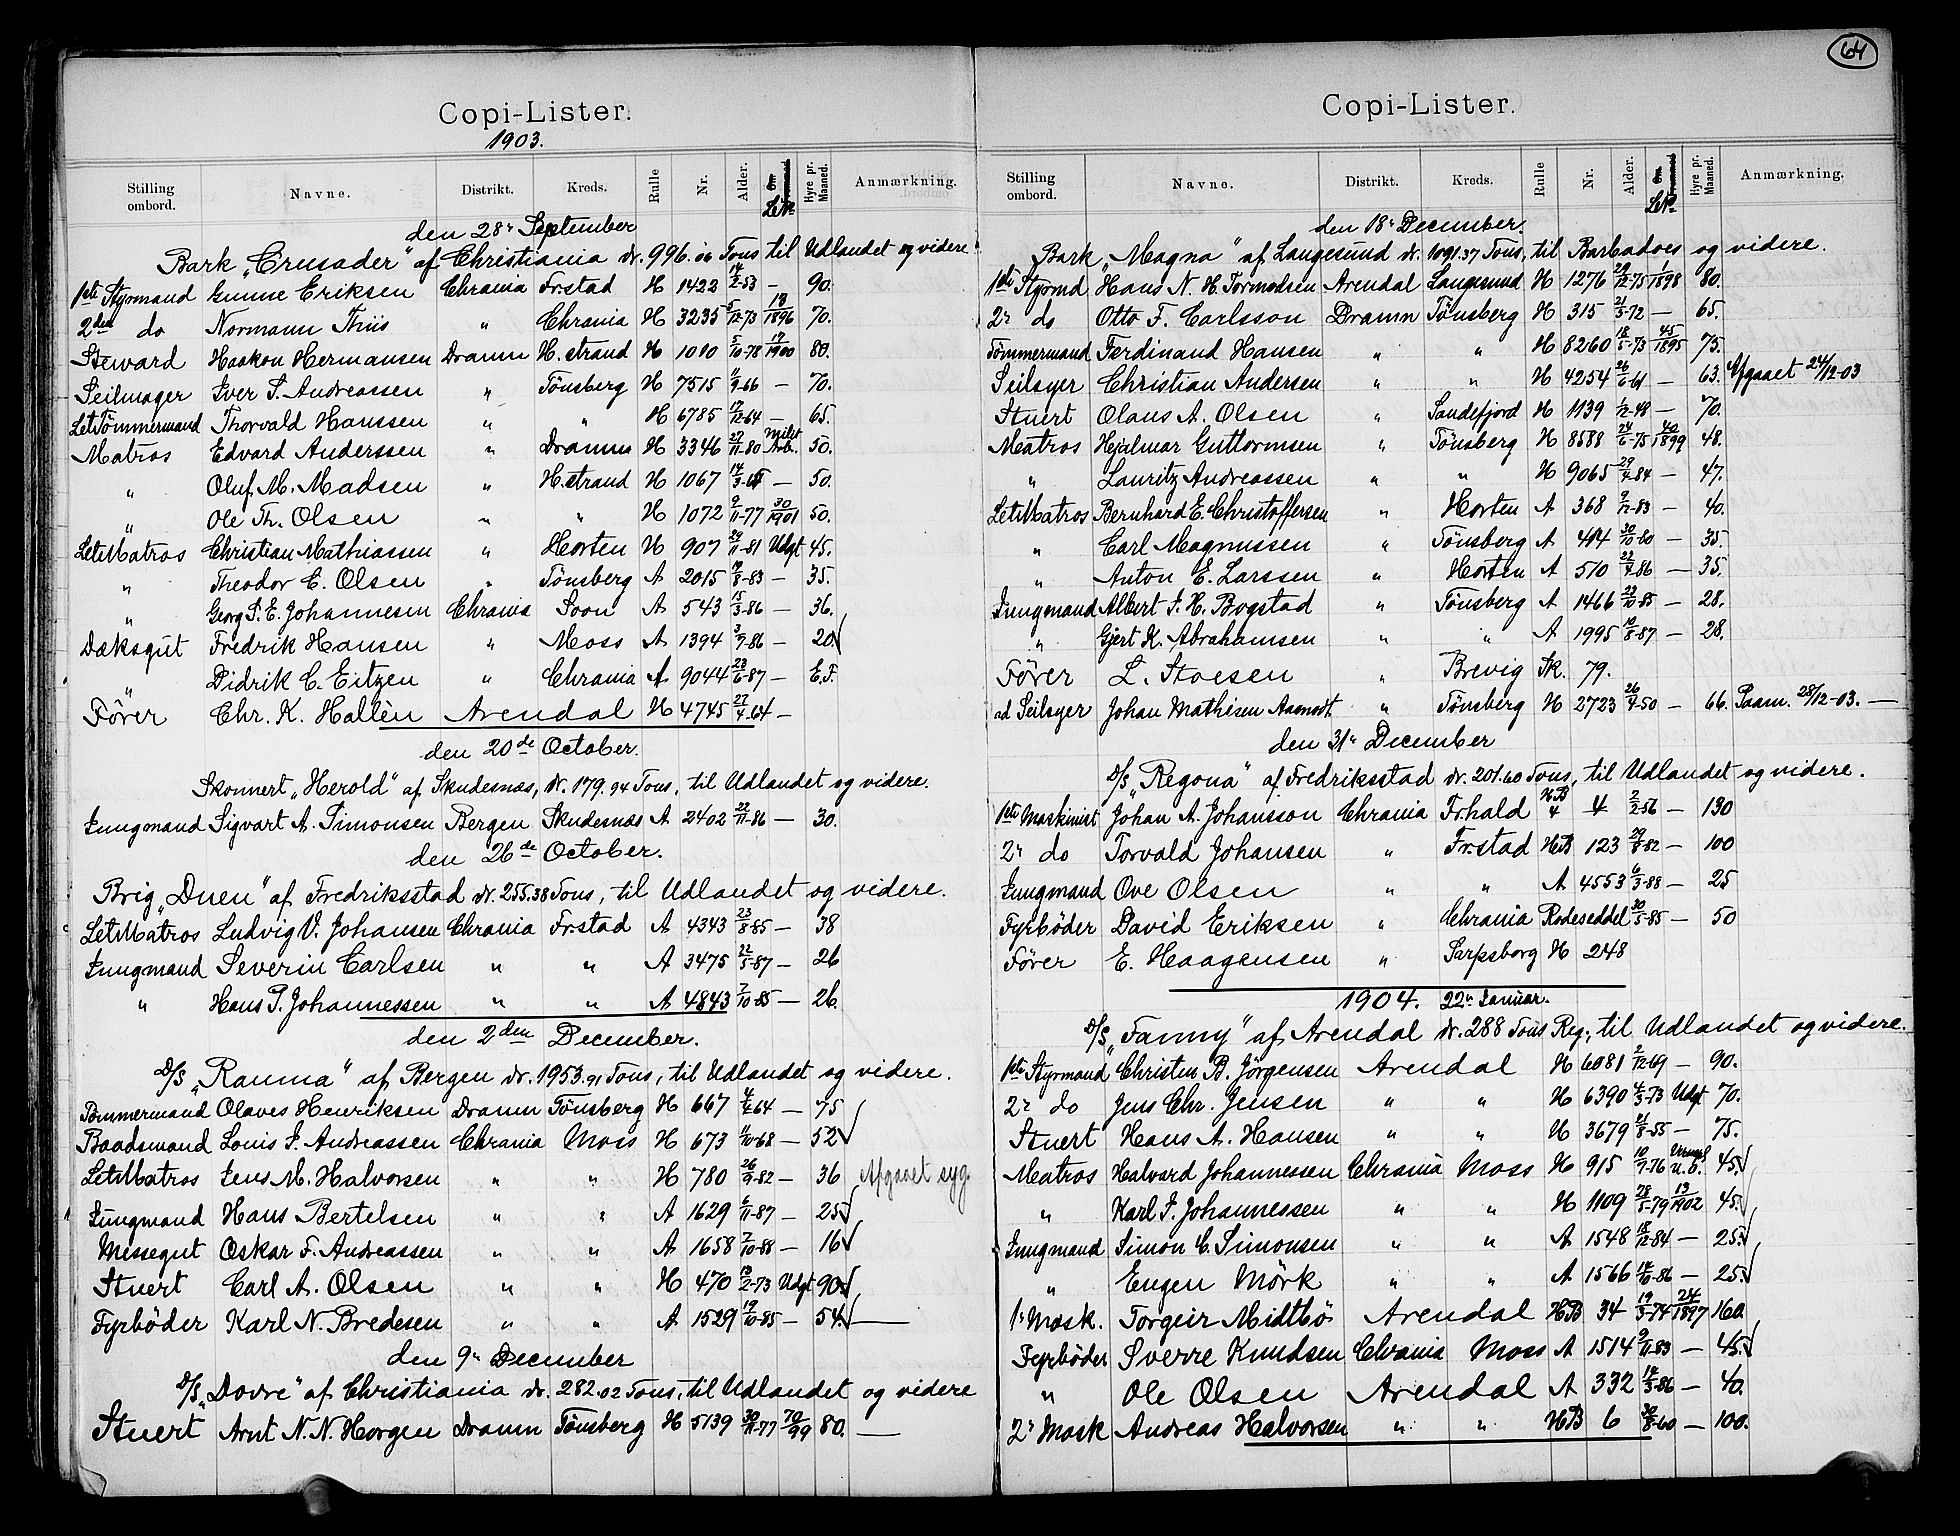 Copi-Lister.
1903.
Stilling ombord. Navne. Distrikt. Kreds. Rulle Nr. Alder. Hyre pr. Maaned. Anmærkning.
den 28n September
Bark „Crusader" af Christiania dr. 996.06 Tons til Udlandet og videre
1ste Styrmand Gunne Eriksen Chrania Frstad H 1422 14/2-53 — 90.
2den do Normann Thiis " Chrania H 3235 5/12-73 18/1896 70.
Steward Haakon Hermansen Dramn H.strand H 1010 5/10-78 17/1900 80.
Seilmager Iver S. Andreassen " Tönsberg H 7515 11/9-66 — 70.
LetTömmermand Thorvald Hanssen " " H 6785 17/12-64 — 65.
Matros Edvard Anderssen " Dramn H 3346 27/11-80 Milit Arb. 50.
" Oluf M. Madsen " H.strand H 1067 — 50.
" Ole Th. Olsen " " H 1072 9/11-77 30/1901 50.
LetMatros Christian Mathiassen " Horten H 907 29/11-81 Udgt 45.
" Theodor E. Olsen " Tönsberg A 2015 19/8-83 — 35.
" Georg S. E. Johannesen Chrania Soon A 543 15/3-86 — 36.
Dæksgut Fredrik Hansen " Moss A 1394 3/9-86 — 20.
" Didrik C. Eitzen " Chrania A 9044 23/6-87 — E.F.
Förer Chr. K. Hallèn Arendal H 4745 27/4-64 —
den 20de October.
Skonnert „Herold" af Skudesnæs, dr. 179.94 Tons, til Udlandet og videre.
Jungmand Sigvart A. Simonsen Bergen Skudesnæs A 2402 22/11-86 — 30.
den 26de October.
Brig „Duen" af Fredriksstad dr. 255.38 Tons, til Udlandet og videre.
LetMatros Ludvig V. Johansen Chrania Frstad A 4343 23/8-85 — 38
Jungmand Severin Carlsen " " A 3475 22/5-87 — 26
" Hans P. Johannessen " " A 4843 7/10-85 — 26.
den 2den December.
D/S „Rauma" af Bergen dr. 1953.91 Tons, til Udlandet og videre.
Tömmermand Olaves Henriksen Dramn Tönsberg H 667 — 75
Baadsmand Louis J. Andreassen Chrania Moss H 673 11/10-68 — 52
LetMatros Jens M. Halvorsen " " H 780 26/9-82 — 36 Afgaaet syg.
Jungmand Hans Bertelsen " " A 1629 6/11-87 — 25
Messegut Oskar F. Andreassen " " A 1658 7/10-88 — 16
Stuert Carl A. Olsen " " H 470 13/2-73 Udgt 90
Fyrböder Karl N. Bredesen " " A 1529 19/10-85 — 54
den 9n December
D/S „Dovre" af Christiania dr. 282.02 Tons, til Udlandet og videre
Stuert Arnt N. N. Horgen Dramn Tönsberg H 5139 30/11-77 70/99 80.
64
Copi-Lister.
Stilling ombord. Navne. Distrikt. Kreds. Rulle Nr. Alder. Hyre pr. Maaned. Anmærkning.
den 18n December
Bark „Magna" af Langesund dr. 1091.37 Tons, til Barbadoes og videre.
1ste Styrmd Hans N. H. Tormodsen Arendal Langesund H 1276 29/12-75 1/1898 80.
2n do Otto F. Carlsson Dramn Tönsberg H 315 21/3-72 — 65.
Tömmermand Ferdinand Hansen " " H 8260 18/5-73 45/1895 75.
Seilsyer Christian Andersen " " H 4254 26/6-61 — 63. Afgaaet 24/12-03
Stuert Olaus A. Olsen " Sandefjord H 1139 1/12-48 — 70.
Matros Hjalmar Guttormsen " Tönsberg H 8588 24/6-75 40/1899 48.
" Lauritz Andreassen " " H 9065 29/4-84 — 47.
LetMatros Bernhard E. Christoffersen " Horten A 368 9/12-83 — 40.
" Carl Magnussen " Tönsberg A 30/10-60 — 35.
" Anton E. Larssen " Horten A 510 — 35.
Jungmand Albert J. H. Bogstad " Tönsberg A 1466 23/10-85 — 28.
" Gjert K. Abrahamsen " " A 1995 10/8-87 — 28.
Förer L. Stoesen " Brevig Sk. 79.
ad Seilsyer Johan Mathisen Aamodt " Tönsberg H 2723 26/4-50 — 66. Paam. 28/12-03. —
den 31n December
D/S „Regona" af Fredriksstad dr. 201.60 Tons, til Udlandet og videre.
1ste Maskinist Johan A. Johansson Chrania Fr.hald HB 4 4 2/2-56 — 130
2n do Torvald Johansen " Fr.stad HB 123 29/8-82 — 100
Jungmand Ove Olsen " " A 4553 6/3-88 — 25
Fyrböder David Eriksen " Chrania Rodeseddel 30/5-85 — 50
Förer E. Haagensen " Sarpsborg H 248
1904. 22n Januar.
D/S „Fanny" af Arendal dr. 288 Tons Reg., til Udlandet og videre.
1ste Styrmand Christen B. Jörgensen Arendal H 6081 2/12-69 — 90.
2n do Jens Chr. Jensen " " H 6390 4/3-73 Udgt 70.
Stuert Hans A. Hansen " " H 3679 21/8-55 — 75.
Matros Halvard Johannessen Chrania Moss H 915 10/7-76 45.
" Karl J. Johannessen " " H 1109 28/5-79 13/1902 45.
Jungmand Simon C. Simonsen " " A 1548 18/12-84 — 25.
" Eugen Mörk " " A 1566 14/10-86 — 25.
1n Mask. Torgeir Midtbö Arendal HB 34 19/3-74 24/1897 160.
Fyrböder Sverre Knudsen Chrania Moss A 1514 9/11-83 — 45.
" Ole Olsen Arendal A 332 14/3-86 — 40.
2n Mask Andreas Halvorsen " " HB 6 30/8-60 — 100.